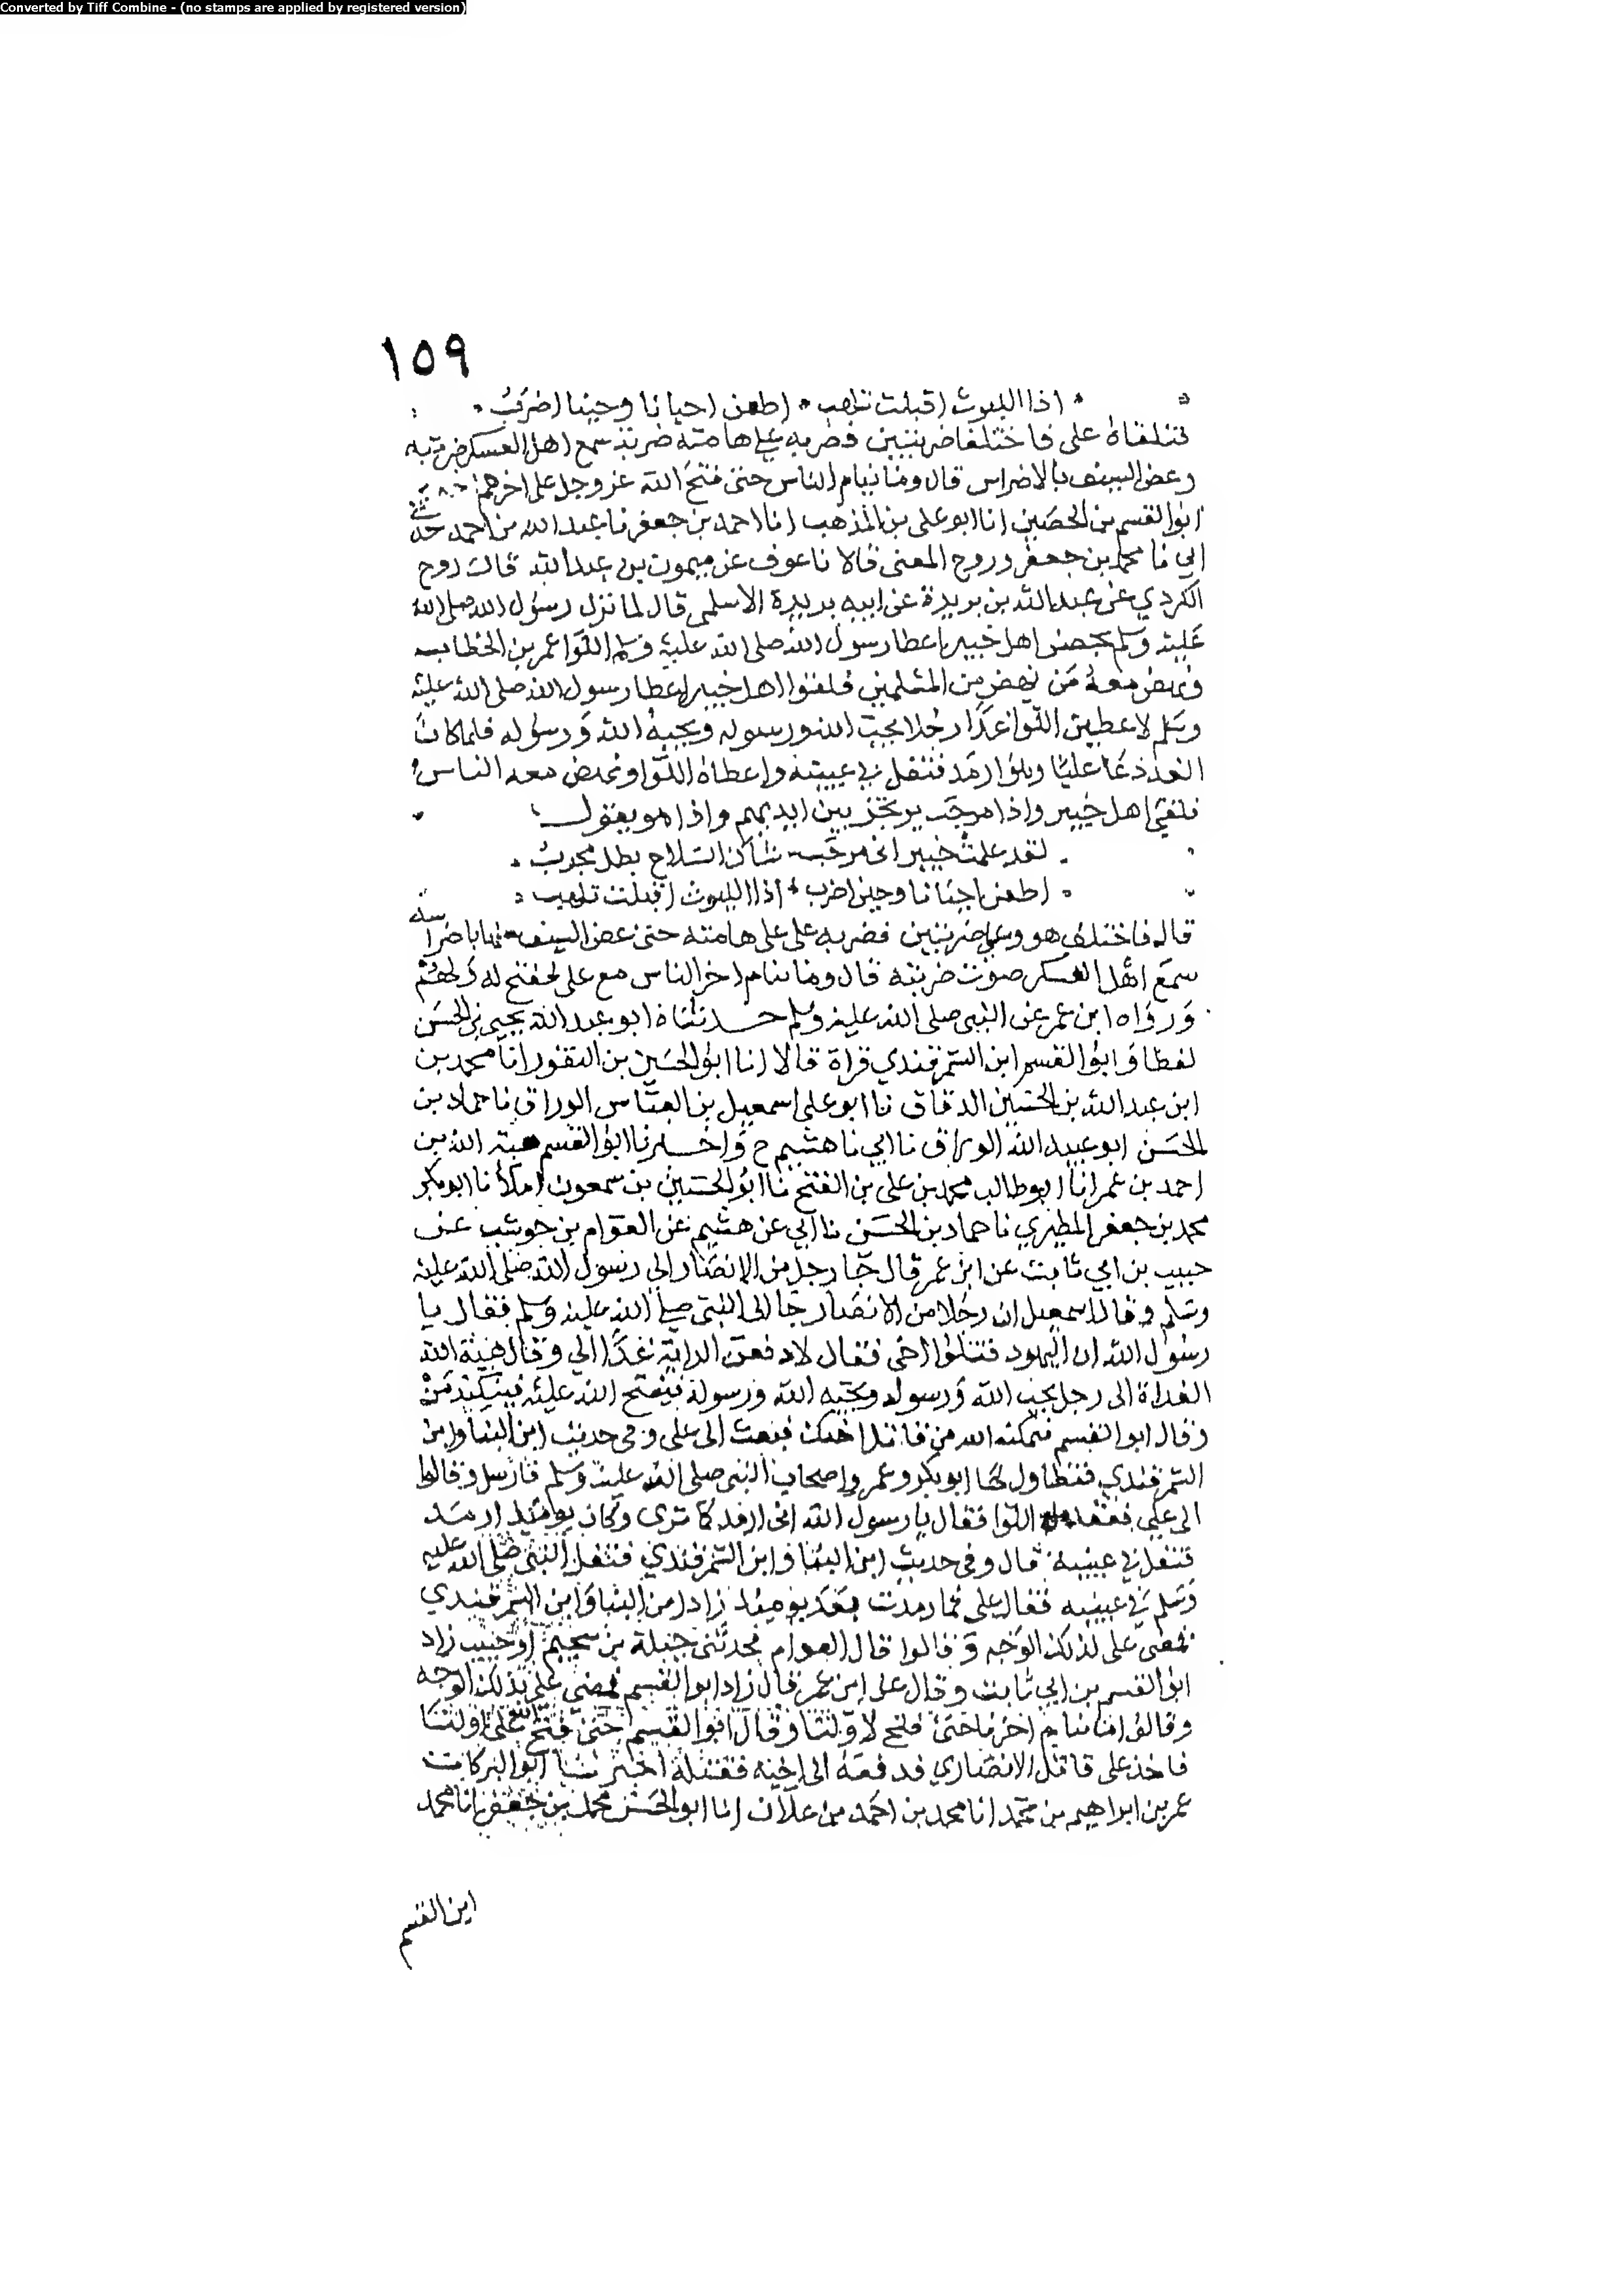 Converted by Tiff Combine - (no stamps are applied by registered version)
١٥٩
اذا الليوث اقبلت تلهب اطعن احيانا وحينا اضرب
فتلقاه على فاختلفا ضربتين فضربه على هامته ضربة سمع اهل العسكر ضربته
وعض السيف بالاضراس قال وما تتام الناس حتى فتح الله عز وجل على اخرهم
ابو القسم بن الحصين انا ابو على بن المذهب انا احمد بن جعفر نا عبد الله بن احمد حدثني
ابي نا محمد بن جعفر وروح المعنى قالا نا عوف عن ميمون بن عبد الله قال روح
الكردي عن عبد الله بن بريدة عن ابيه بريدة الاسلمى قال لما نزل رسول الله صلى الله
عليه وسلم بحصن اهل خيبر اعطا رسول الله صلى الله عليه وسلم اللوا عمر بن الخطاب
ونهض معه من نهض من المسلمين فلقوا اهل خيبر اعطا رسول الله صلى الله عليه
وسلم لاعطين اللوا غدا رجلا يحب الله ورسوله ويحبه الله ورسوله فلما كان
الغد دعا عليا وهو ارمد فتفل في عينيه واعطاه اللوا ونهض معه الناس
فلقي اهل خيبر واذا مرحب يرتجز بين ايديهم واذا هو يقول
لقد علمت خيبر انى مرحب شاك السلاح بطل مجرب
اطعن احيانا وحين اضرب اذا الليوث اقبلت تلهب
قال فاختلف هو وعلى ضربتين فضربه على على هامته حتى عض السيف منها باضراسه
سمع اهل العسكر صوت ضربته قال وما تتام اخر الناس مع على حتى فتح له ولهم
ورواه ابن عمر عن النبى صلى الله عليه وسلم حدثناه ابو عبد الله يحيى بن الحسن
لفظا وابو القسم ابن السمرقندي قراة قالا انا ابو الحسين بن النقور انا محمد بن
ابن عبد الله بن الحسين الدقاق نا ابو على اسمعيل بن العباس الوراق نا حماد بن
الحسن ابو عبيد الله الوراق نا ابي نا هشيم ح واخبرنا ابو القسم هبة الله بن
احمد بن عمر انا ابو طالب محمد بن على بن الفتح نا ابو الحسين بن سمعون املا نا ابو بكر
محمد بن جعفر المطيري نا حماد بن الحسن نا ابي عن هشيم عن العوام بن حوشب عن
حبيب بن ابي ثابت عن ابن عمر قال جا رجل من الانصار الى رسول الله صلى الله عليه
وسلم وقال اسمعيل ان رجلا من الانصار جا الى النبى صلى الله عليه وسلم فقال يا
رسول الله ان اليهود قتلوا اخى فقال لادفعن الراية غدا الى وقال هبة الله
الغداة الى رجل يحب الله ورسوله ويحبه الله ورسوله فيفتح الله عليه من
وقال ابو القسم فيمكنه الله من قاتل اخيك فبعث الى على وفى حديث ابن البنا وابن
السمرقندي فتطاول لها ابو بكر وعمر واصحاب النبى صلى الله عليه وسلم فارسل وقالوا
الى على فعقد له اللوا فقال يا رسول الله انى ارمد كما ترى وكان يومئذ ارمد
فتفل في عينيه قال وفى حديث ابن البنا وابن السمرقندي فتفل النبى صلى الله عليه
وسلم في عينيه فقال على فما رمدت بعد يومئذ زاد ابن البنا وابن السمرقندي
فمضى على لذلك الوجه وقالوا قال العوام فحدثنى جبلة بن سحيم او حبيب زاد
ابو القسم بن ابي ثابت وقال على ابن عمر قال زاد ابو القسم فمضى على بذلك الوجه
وقالوا فما تتام اخرنا حتى فتح لاولنا وقال ابو القسم حتى فتح الله على اولنا
فاخذ على قاتل الانصاري فدفعه الى اخيه فقتله اخبرنا ابو البركات
عمر بن ابراهيم بن محمد انا محمد بن احمد بن علان انا ابو الحسن محمد بن جعفر انا محمد
ابن القسم